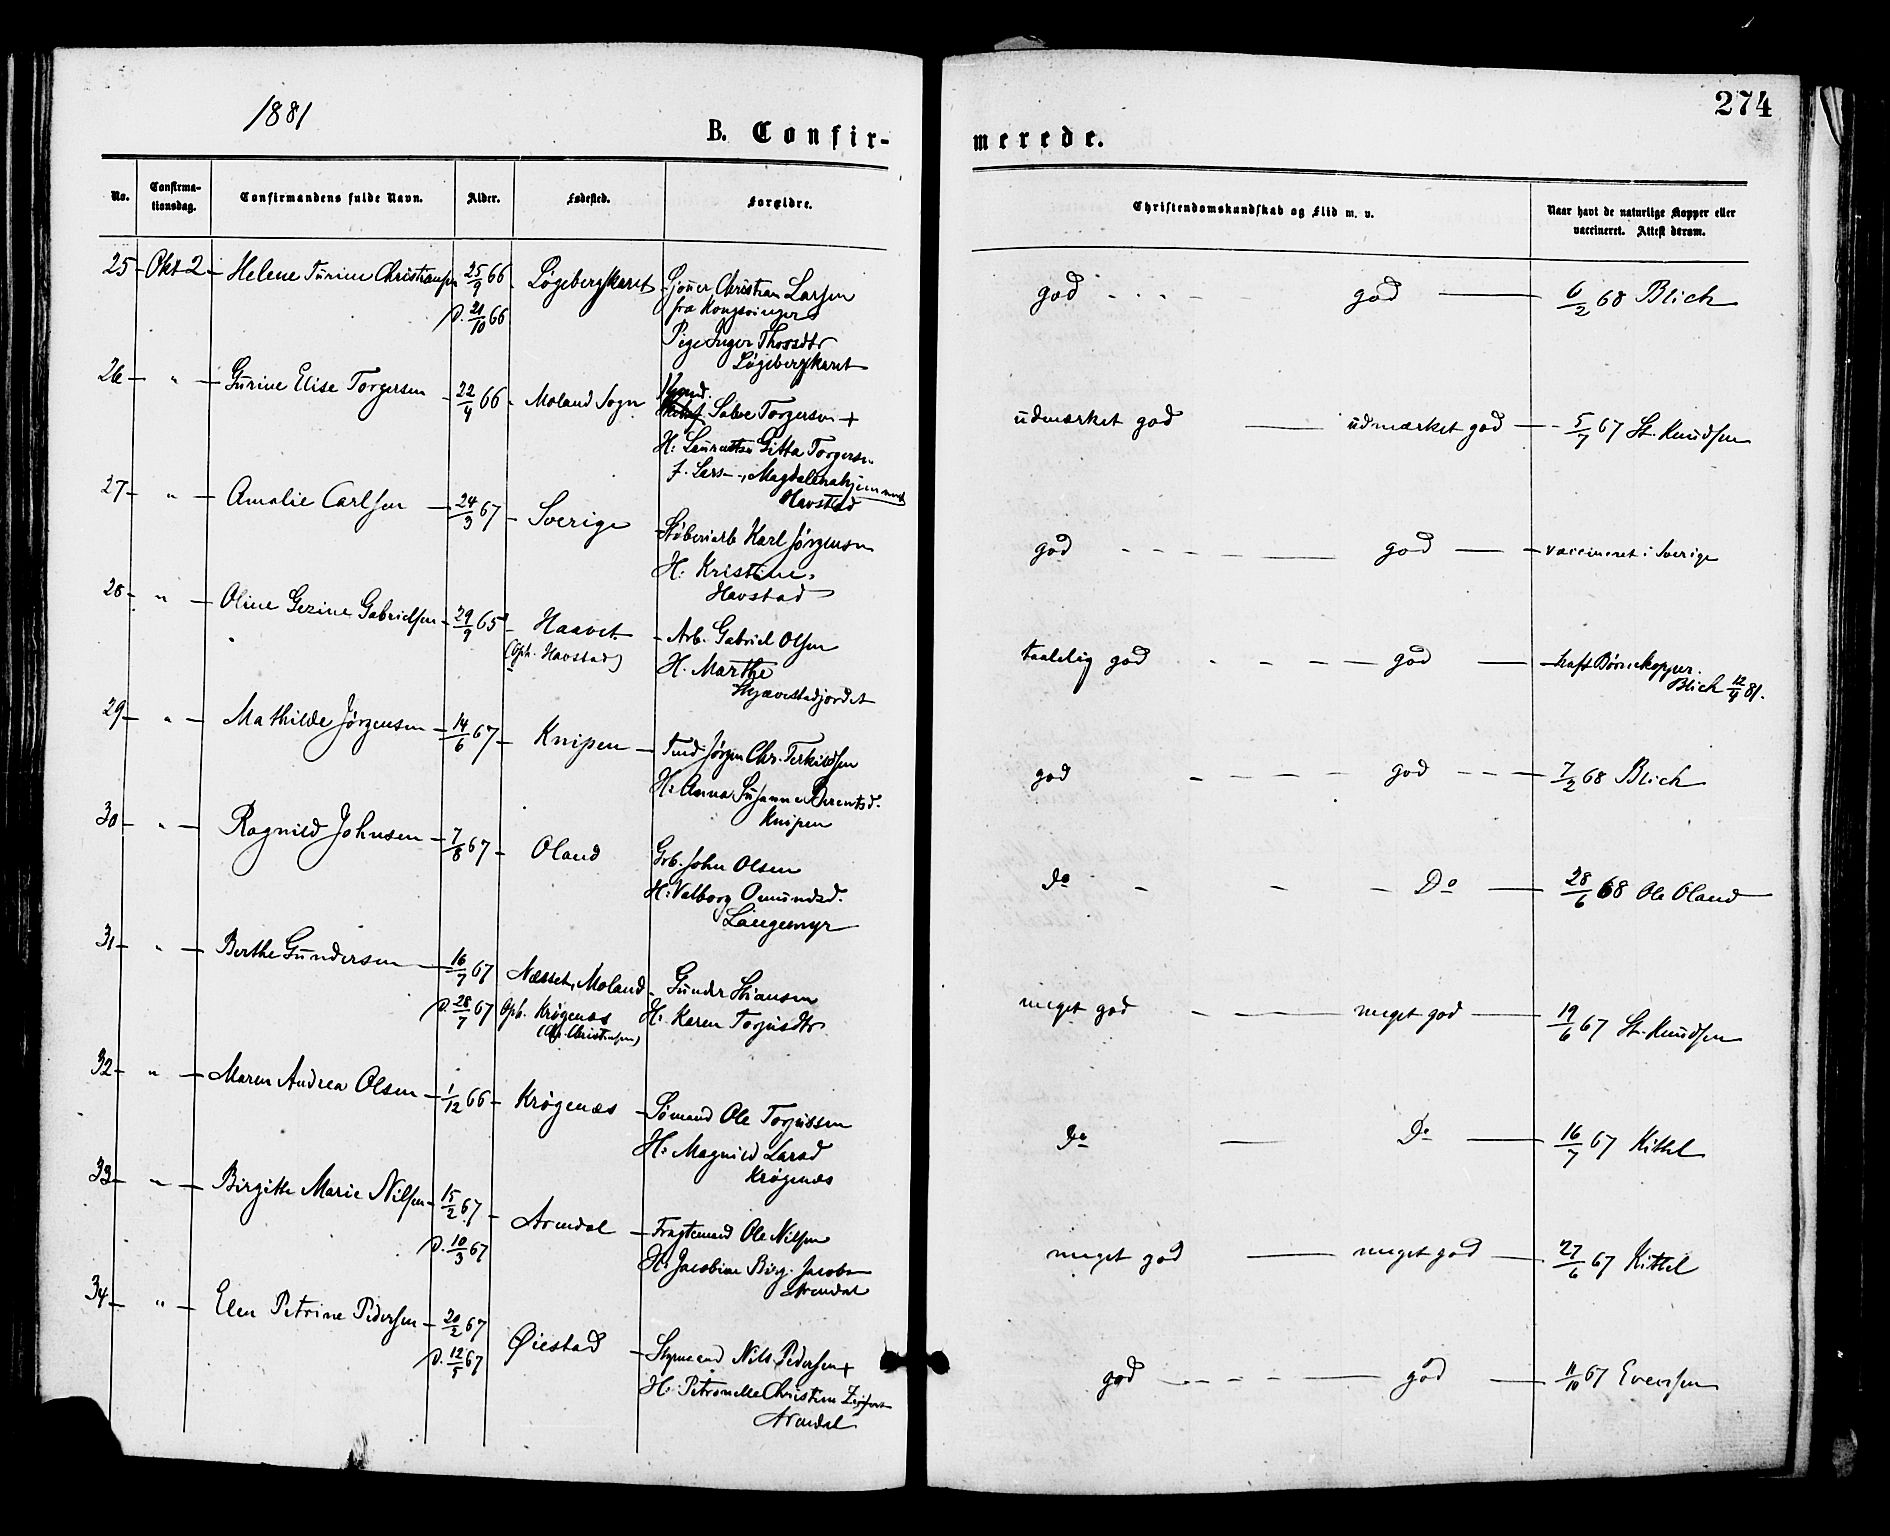 1881
274
B. Confir-
merede.
No.
Confirma-
tionsdag.
Confirmandens fulde Navn.
Alder.
Fødested.
Forældre.
Christendomskundskab og Flid m. v.
Naar havt de naturlige Kopper eller
vaccineret. Attest derom.
25 Okt 2 Helene Turine Christiansen 25/9 66 Løgebergskaret Christian Larsen god god 6/2 68 Blich
fra Kongsvinger
D. 21/10 66
Pige Inger Thorsdtr
Løgebergskaret
26 " Gurine Elise Torgersen 22/4 66 Moland Sogn Salve Torgersen + udmærket god udmærket god 5/7 67 St. Knudsen
H: Gitta Torgersen
Magdalenahjemmet
Havstad
27 " Amalie Carlsen 24/3 67 Sverige Støberiarb Karl Jørgensen god god vaccineret i Sverige
H: Kristine
Havstad
28 " Oline Gezine Gabrielsen 29/9 65 Haavet Arb. Gabriel Olsen taalelig god god haft Børnekopper.
(Oph. Havstad) H. Marthe Blich 12/4 81.
Skjævestadjordet
29 " Mathilde Jørgensen 14/6 67 Knipen Jørgen Chr. Terkildsen god god 7/2 68 Blich
H: Anna Susanne Berentsd.
Knipen
30 " Ragnild Johnsen 7/8 67 Oland Grb. John Olsen Do Do 28/6 68 Ole Oland
H: Valborg Omundsd.
Langemyr
31 " Berthe Gundersen 16/7 67 Næsset, Moland Gunder meget god meget god 19/6 67 St. Knudsen
D. 28/7 67 Oph. Krøgenæs H. Karen Torjusdtr
32 " Maren Andrea Olsen 1/12 66 Krøgenæs Sømand Ole Torjussen Do Do 16/7 67 Kittel
H: Magnild Larsd
Krøgenæs
33 " Birgitte Marie Nilsen 15/2 67 Arendal Fragtemand Ole Nilsen meget god meget god 27/6 67 Kittel
D. 10/3 67 H: Jacobine Birg. Jacobsen
Arendal
34 " Elen Petrine Pedersen 20/2 67 Øiestad Styrmand Nils Pedersen + god god 11/10 67 Evensen
D. 12/5 67 H: Petronelle Christine
Arendal